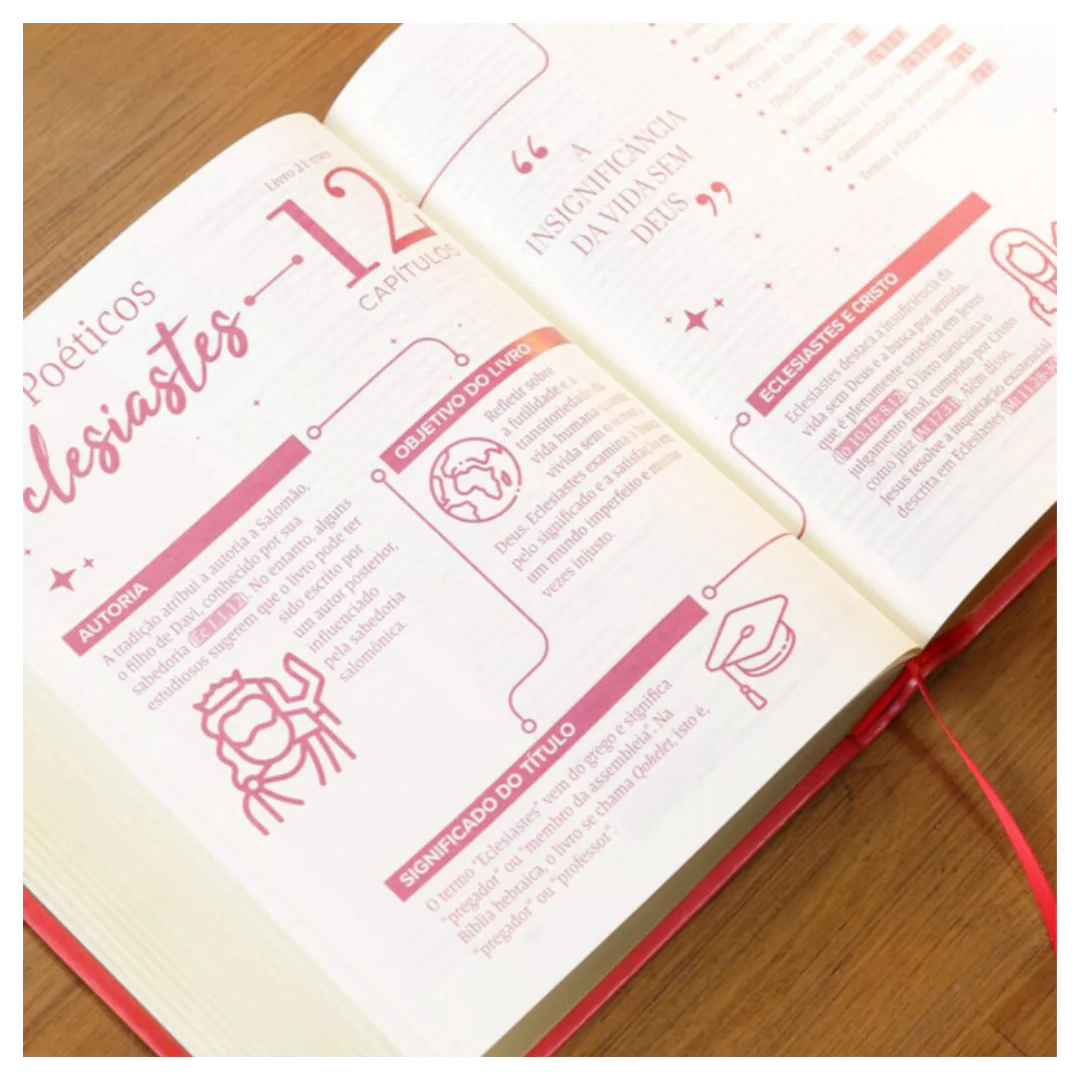 Livro 21 com
12
CAPÍTULOS
Poéticos
clesiastes
AUTORIA
A tradição atribui a autoria a Salomão,
o filho de Davi, conhecido por sua
sabedoria (Ec 1.1,12). No entanto, alguns
estudiosos sugerem que o livro pode ter
sido escrito por
um autor posterior,
influenciado
pela sabedoria
salomônica.
OBJETIVO DO LIVRO
Refletir sobre
a futilidade e a
transitoriedade da
vida humana quando
vivida sem o temor a
Deus. Eclesiastes examina a busca
pelo significado e a satisfação em
um mundo imperfeito e muitas
vezes injusto.
SIGNIFICADO DO TÍTULO
O termo "Eclesiastes" vem do grego e significa
"pregador" ou "membro da assembleia". Na
Bíblia hebraica, o livro se chama Qohelet, isto é,
"pregador" ou "professor".
“ A
INSIGNIFICÂNCIA
DA VIDA SEM
DEUS ”
Temor a Deus e
ECLESIASTES E CRISTO
Eclesiastes destaca a insuficiência da
vida sem Deus e a busca por sentido,
que é plenamente satisfeita em Jesus
(Jo 10.10; 8.12). O livro menciona o
julgamento final, cumprido por Cristo
como juiz (At 17.31). Além disso,
Jesus resolve a inquietação existencial
descrita em Eclesiastes (Mt 11.28-30